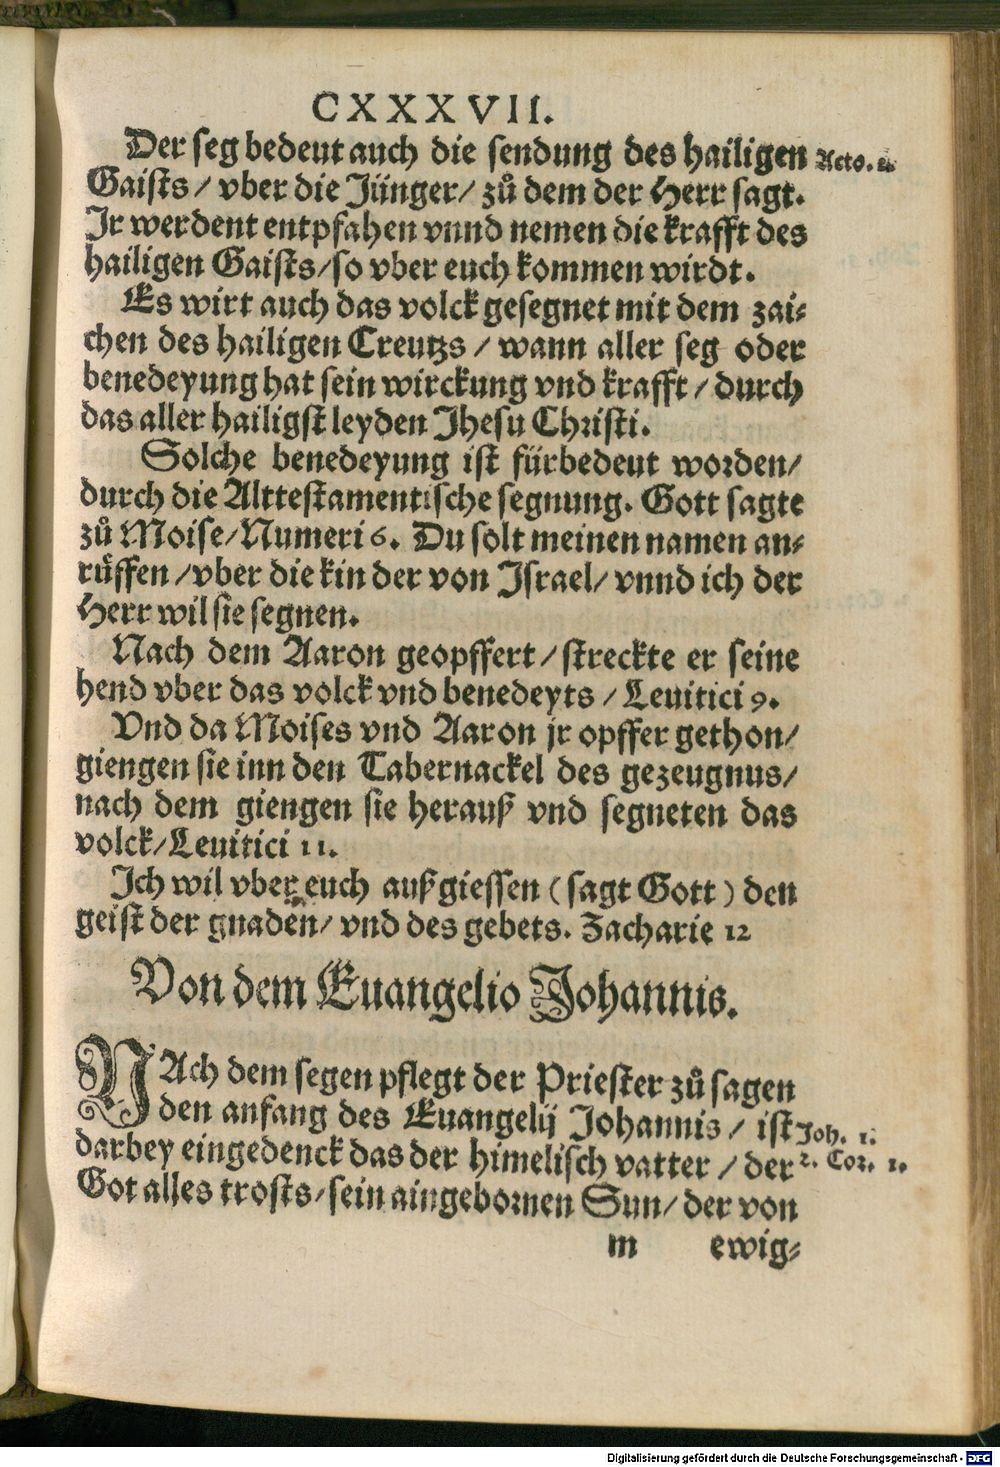 CXXXVII.
Der seg bedeut auch die sendung des hailigen
Acto. 1.
Gaists / vber die Jünger / zů dem der Herr sagt.
Jr werdent entpfahen vnnd nemen die krafft des
hailigen Gaists / so vber euch kommen wirdt.
Es wirt auch das volck gesegnet mit dem zai⸗
chen des hailigen Creutzs / wann aller seg oder
benedeyung hat sein wirckung vnd krafft / durch
das aller hailigst leyden Jhesu Christi.
Solche benedeyung ist fürbedeut worden /
durch die Alttestamentische segnung. Gott sagte
zů Moise / Numeri 6. Du solt meinen namen an⸗
rüffen / vber die kin der von Jsrael / vnnd ich der
Herr wil sie segnen.
Nach dem Aaron geopffert / streckte er seine
hend vber das volck vnd benedeyts / Leuitici 9.
Vnd da Moises vnd Aaron jr opffer gethon /
giengen sie inn den Tabernackel des gezeugnus /
nach dem giengen sie herauß vnd segneten das
volck / Leuitici 11.
Jch wil vber euch außgiessen ( sagt Gott ) den
geist der gnaden / vnd des gebets. Zacharie 12
Von dem Euangelio Johannis.
NAch dem segen pflegt der Priester zů sagen
den anfang des Euangelij Johannis / ist
Joh. 1.
darbey eingedenck das der himelisch vatter / der
2. Cor. 1.
Got alles trosts / sein aingebornen Sun / der von
m ewig⸗
Digitalisierung gefördert durch die Deutsche Forschungsgemeinschaft - DFG